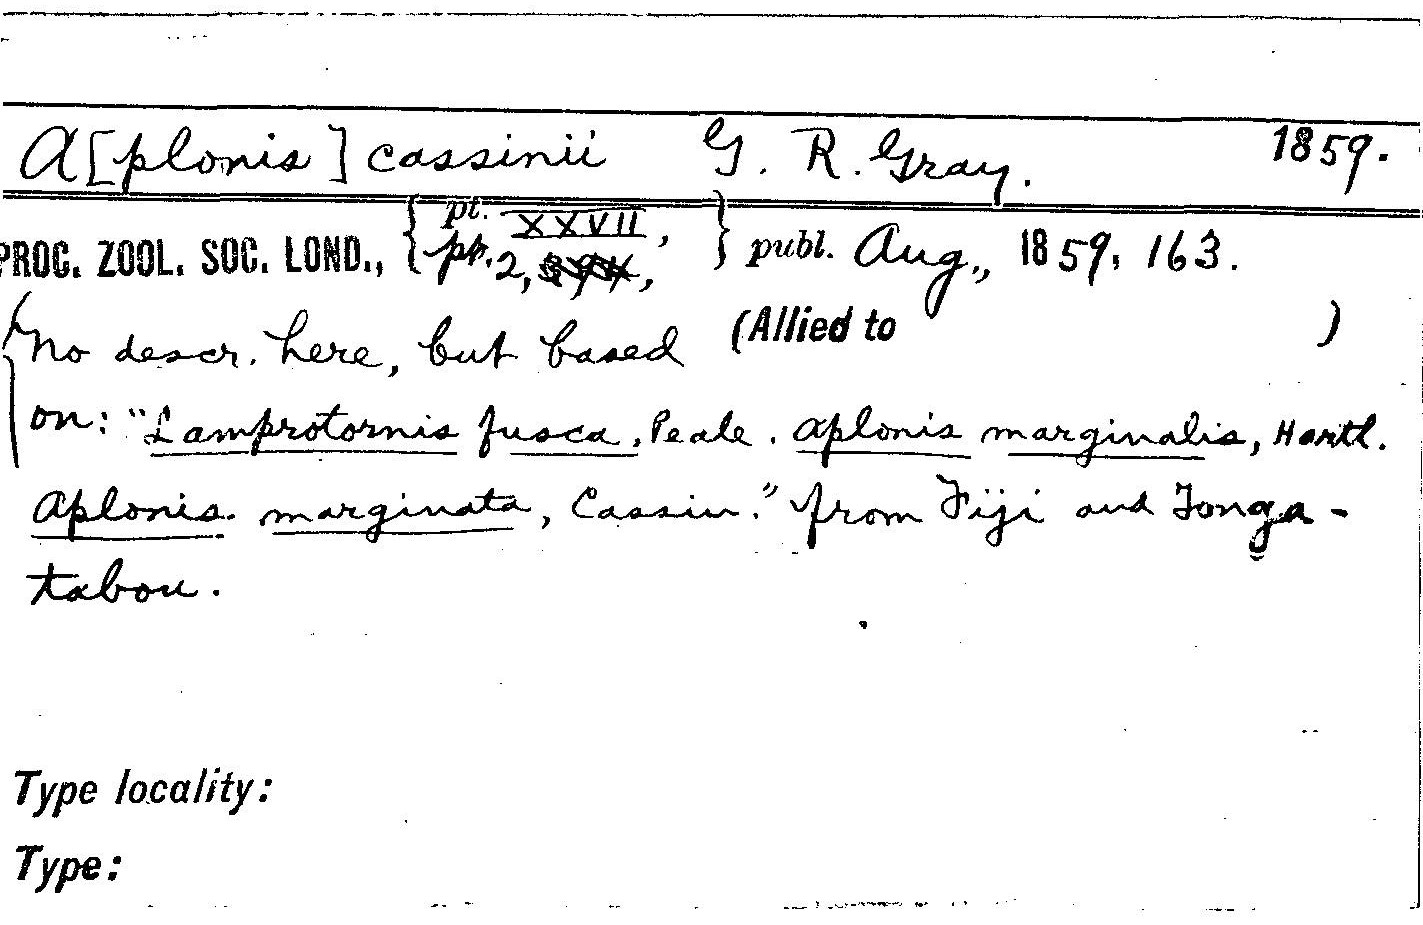 A[plonis] cassinii G. R. Gray. 1859.
PROC. ZOOL. SOC. LOND., { pt. XXVII, pt. 2, } publ. Aug., 1859, 163.
(Allied to )
No descr. here, but based
on: "Lamprotornis fusca, Peale. Aplonis marginalis, Hartl.
Aplonis. marginata, Cassin." from Fiji and Tonga-
tabou.
Type locality:
Type: